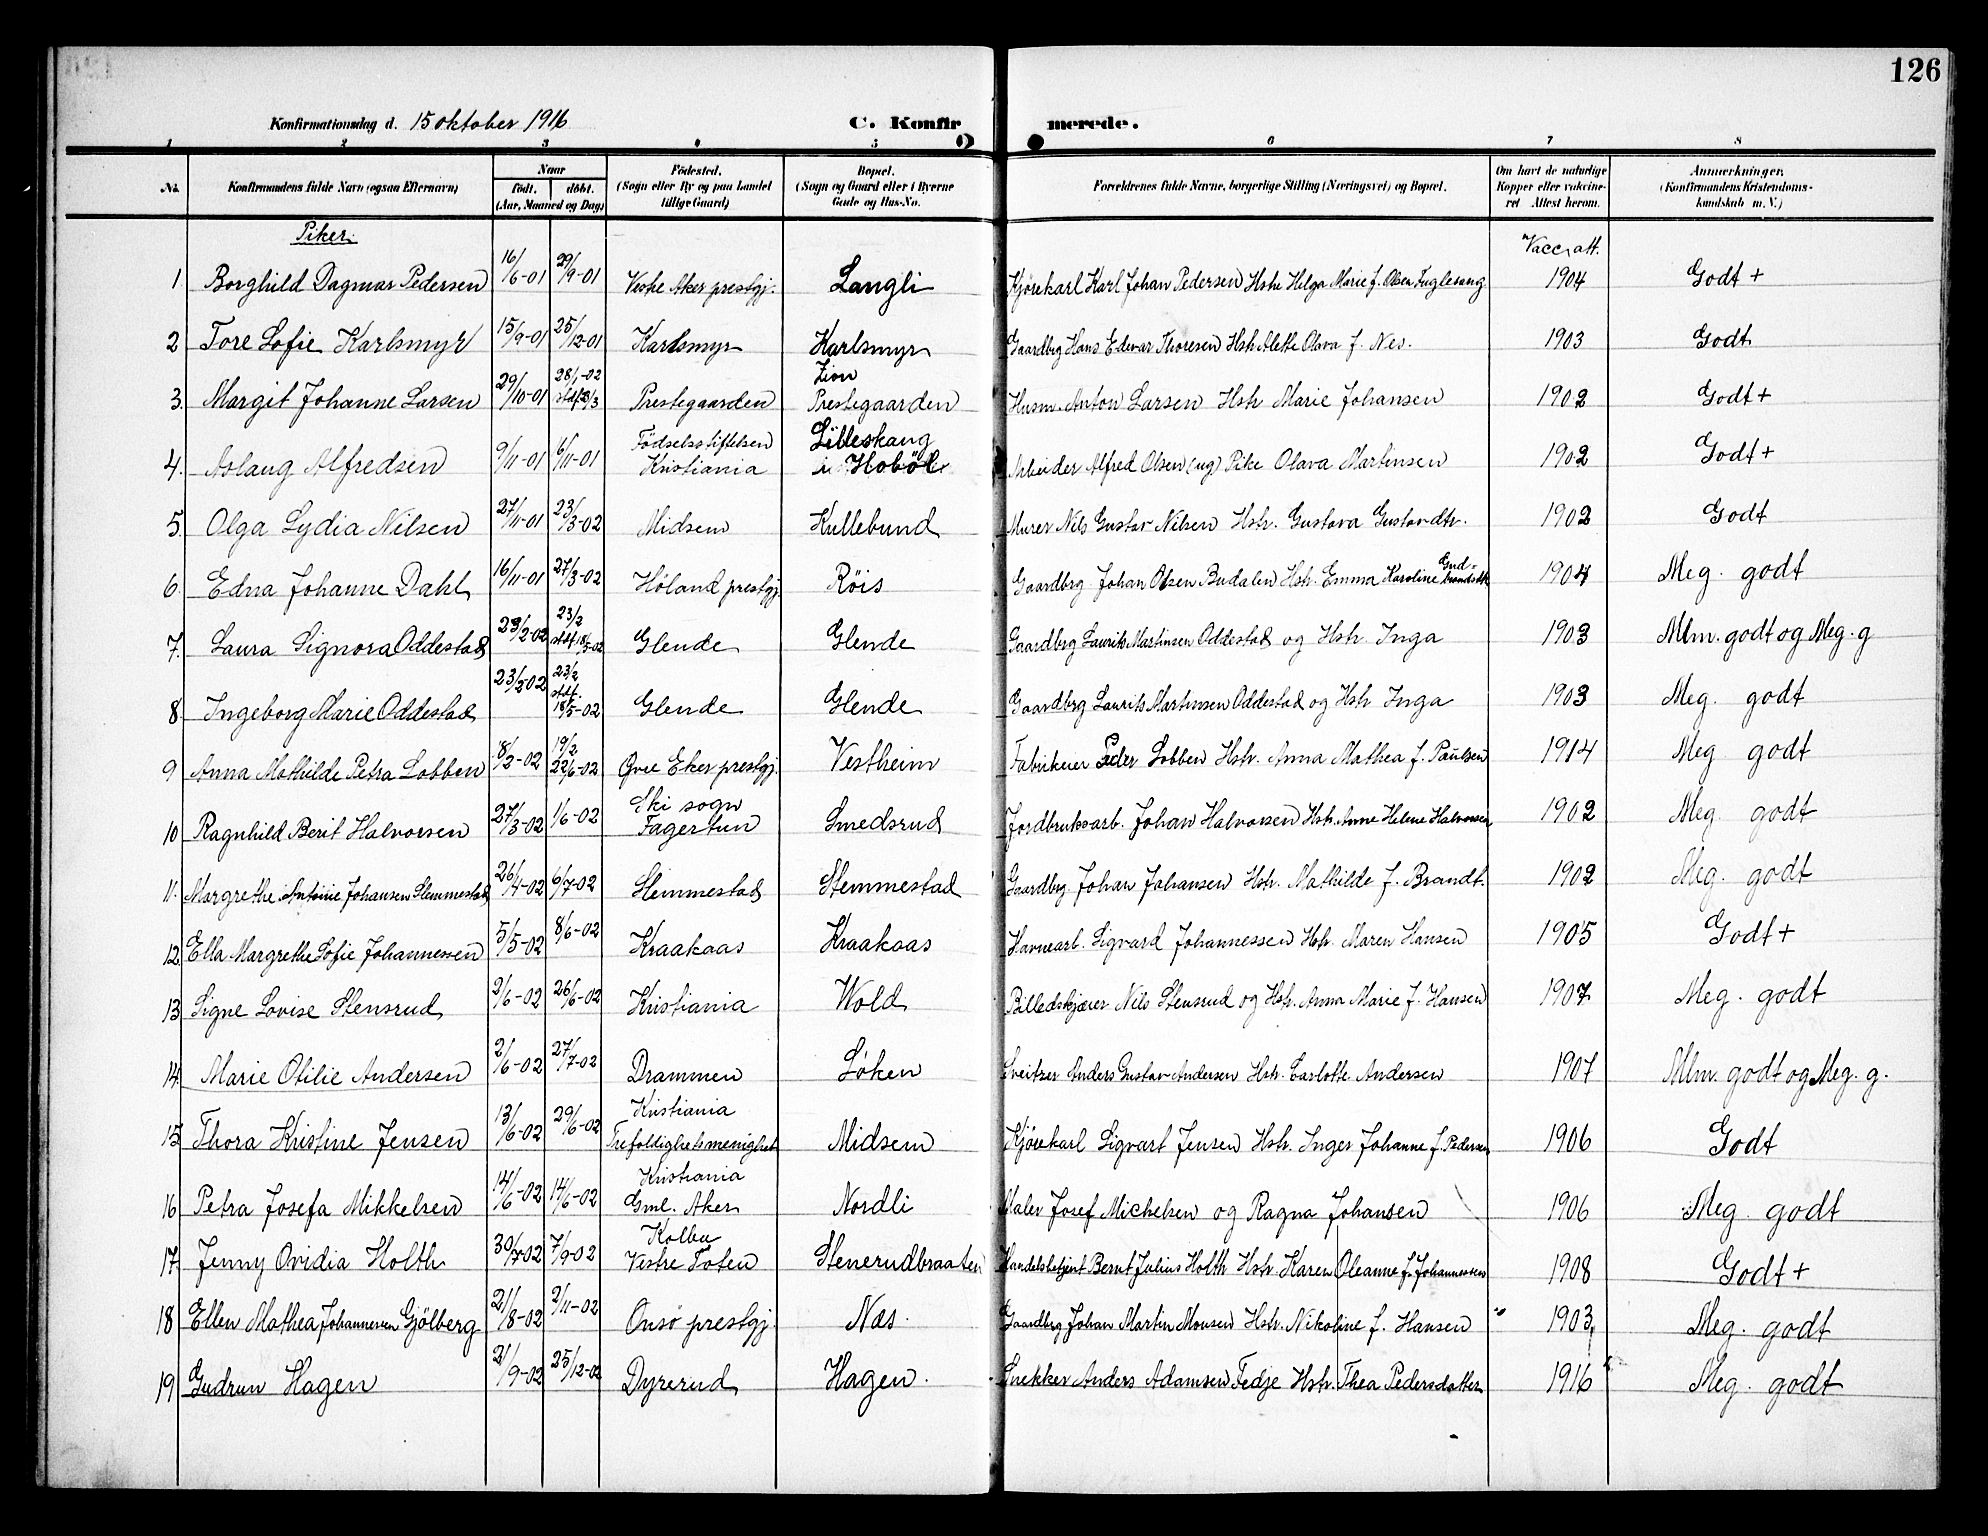 126
Konfirmationsdag d. 15 oktober 1916 C. Konfirmerede.
1 2 3 4 5 6 7 8
No. Konfirmandens fulde Navn (ogsaa Efternavn) Naar født. døbt. (Aar, Maaned og Dag) Fødested. (Sogn eller By og paa Landet tillige Gaard) Bopæl. (Sogn og Gaard eller i Byerne Gade og Hus-No. Forældrenes fulde Navne, borgerlige Stilling (Næringsvei) og Bopæl. Om havt de naturlige Kopper eller vakcineret Attest herom. Anmærkninger. (Konfirmandens Kristendomskundskab m. V.)
Piker. Vacc. att.
1 Borghild Dagmar Pedersen 16/6-01 29/9-01 Vestre Aker prestgj. Langli Kjørekarl Karl Johan Pedersen Hstr Helga Marie f. Olsen Fuglesang 1904 Godt +
2 Tore Sofie Karlsmyr 15/9-01 25/12-01 Karlsmyr Karlsmyr Gaardbrg Hans Edvar Thoresen Hstr Alette Olava f. Nes. 1903 Godt
3. Margit Johanne Larsen 29/10-01 28/1-02 stdf. /3 Prestegaarden Zion Prestegaarden Husm. Anton Larsen Hstr Marie Johansen 1902 Godt +
4. Aslaug Alfredsen 9/11-01 6/11-01 Födselsstiftelsen Kristiania Lilleskaug i Hobøl Arbeider Alfred Olsen (ug) Pike Olava Martinsen 1902 Godt +
5. Olga Lydia Nilsen 27/11-01 23/3-02 Midsem Kullebund Murer Nils Gustav Nilsen Hstr. Gustava Gustavdtr. 1902 Godt
6. Edna Johanne Dahl 16/11-01 27/3-02 Høland prestgj. Røis Gaardbrg Johan Olsen Budalen Hstr. Emma Karoline Gudbrandsdtr 1904 Meg. godt
7. Laura Signora Oddestad 23/2-02 23/2 stdf. 18/5-02 Glende Glende Gaardbrg Laurits Martinsen Oddestad og Hstr. Inga 1903 Mlm. godt og Meg. g
8 Ingeborg Marie Oddestad 23/2-02 23/2 stdf. 18/5-02 Glende Glende Gaardbrg Laurits Martinsen Oddestad og Hstr Inga 1903 Meg. godt
9 Anna Mathilde Petra Lobben 8/2-02 19/2 22/6-02 Øvre Eker prestgj. Vestheim Fabrikeier Peder Lobben Hstr. Anna Mathea f. Paulsen 1914 Meg godt
10 Ragnhild Berit Halvorsen 27/3-02 1/6-02 Ski sogn Fagertun Smedsrud Jordbruksarb. Johan Halvorsen Hstr. Anne Helene Halvorsen 1902 Meg. godt
11. Margrethe Antonie Johansen Slemmestad 26/4-02 6/7-02 Slemmestad Slemmestad Gaardbrg. Johan Johansen Hstr. Mathilde f. Brandt. 1902 Meg. godt
12 Ella Margrethe Sofie Johannessen 5/5-02 8/6-02 Kraakaas Kraakaas Havnearb. Sigvard Johannessen Hstr. Maren Hansen 1905 Godt +
13 Signe Lovise Stensrud 2/6-02 26/6-02 Kristiania Wold Billedskjærer Nils Stensrud og Hstr. Anna Marie f. Hansen 1907 Meg. godt
14 Marie Otilie Andersen 2/6-02 27/7-02 Drammen Løken Sveitzer Anders Gustav Andersen Hstr. Carlotte Andersen 1907 Mlm. godt og Meg. g.
15 Thora Kristine Jensen 13/6-02 29/6-02 Kristiania Trefoldighetsmenighet Midsem Kjørekarl Sigvart Jensen Hstr. Inger Johanne f. Pedersen 1906 Godt
16 Petra Josefa Mikkelsen 14/6-02 14/6-02 Kristiania Gml. Aker Nordli Maler Josef Michelsen og Ragna Johansen 1906 Meg. godt
17 Jenny Ovidia Holth 30/7-02 7/9-02 Kolbu Vestre Toten Stenerudbraaten Handelsbetjent Bernt Julius Holth Hstr. Karen Oleanne f. Johannessen 1908 Godt +
18 Ellen Mathea Johannesen Gjölberg 21/8-02 2/11-02 Onsø prestgj. Næs. Gaardbrg Johan Martin Monsen Hstr. Nikoline f. Hansen 1903 Meg. godt
19 Gudrun Hagen 21/9-02 25/12-02 Dyrerud Hagen. Snekker Anders Adamsen Fedje Hstr. Thea Pedersdatter 1916 Meg. godt